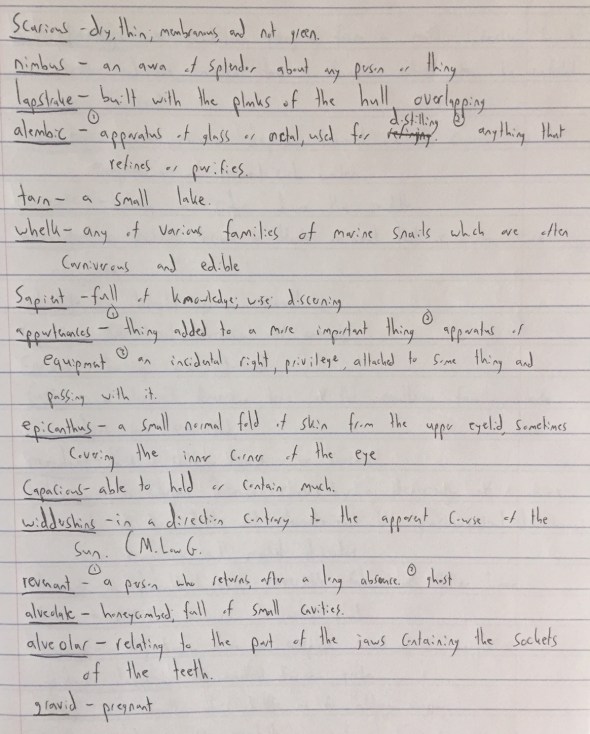 Scarious - dry, thin, membranous, and not green.
nimbus - an awa of splendor about any person or thing
lapstrake - built with the planks of the hull overlapping
alembic - ① apparatus of glass or metal, used for refining. distilling ② anything that
refines or purifies.
tarn - a small lake.
whelk - any of various families of marine snails which are often
Carniverous and edible
Sapient - full of knowledge; wise; discerning
appurtenances - ① thing added to a more important thing ② apparatus or
equipment ③ an incidental right, privilege, attached to some thing and
passing with it.
epicanthus - a small normal fold of skin from the upper eyelid, sometimes
Covering the inner corner of the eye
Capacious - able to hold or contain much.
widdershins - in a direction contrary to the apparent course of the
Sun. (M. Low G.
revenant - ① a person who returns after a long absence. ② ghost
alveolate - honeycombed; full of small cavities.
alveolar - relating to the part of the jaws containing the sockets
of the teeth.
gravid - pregnant